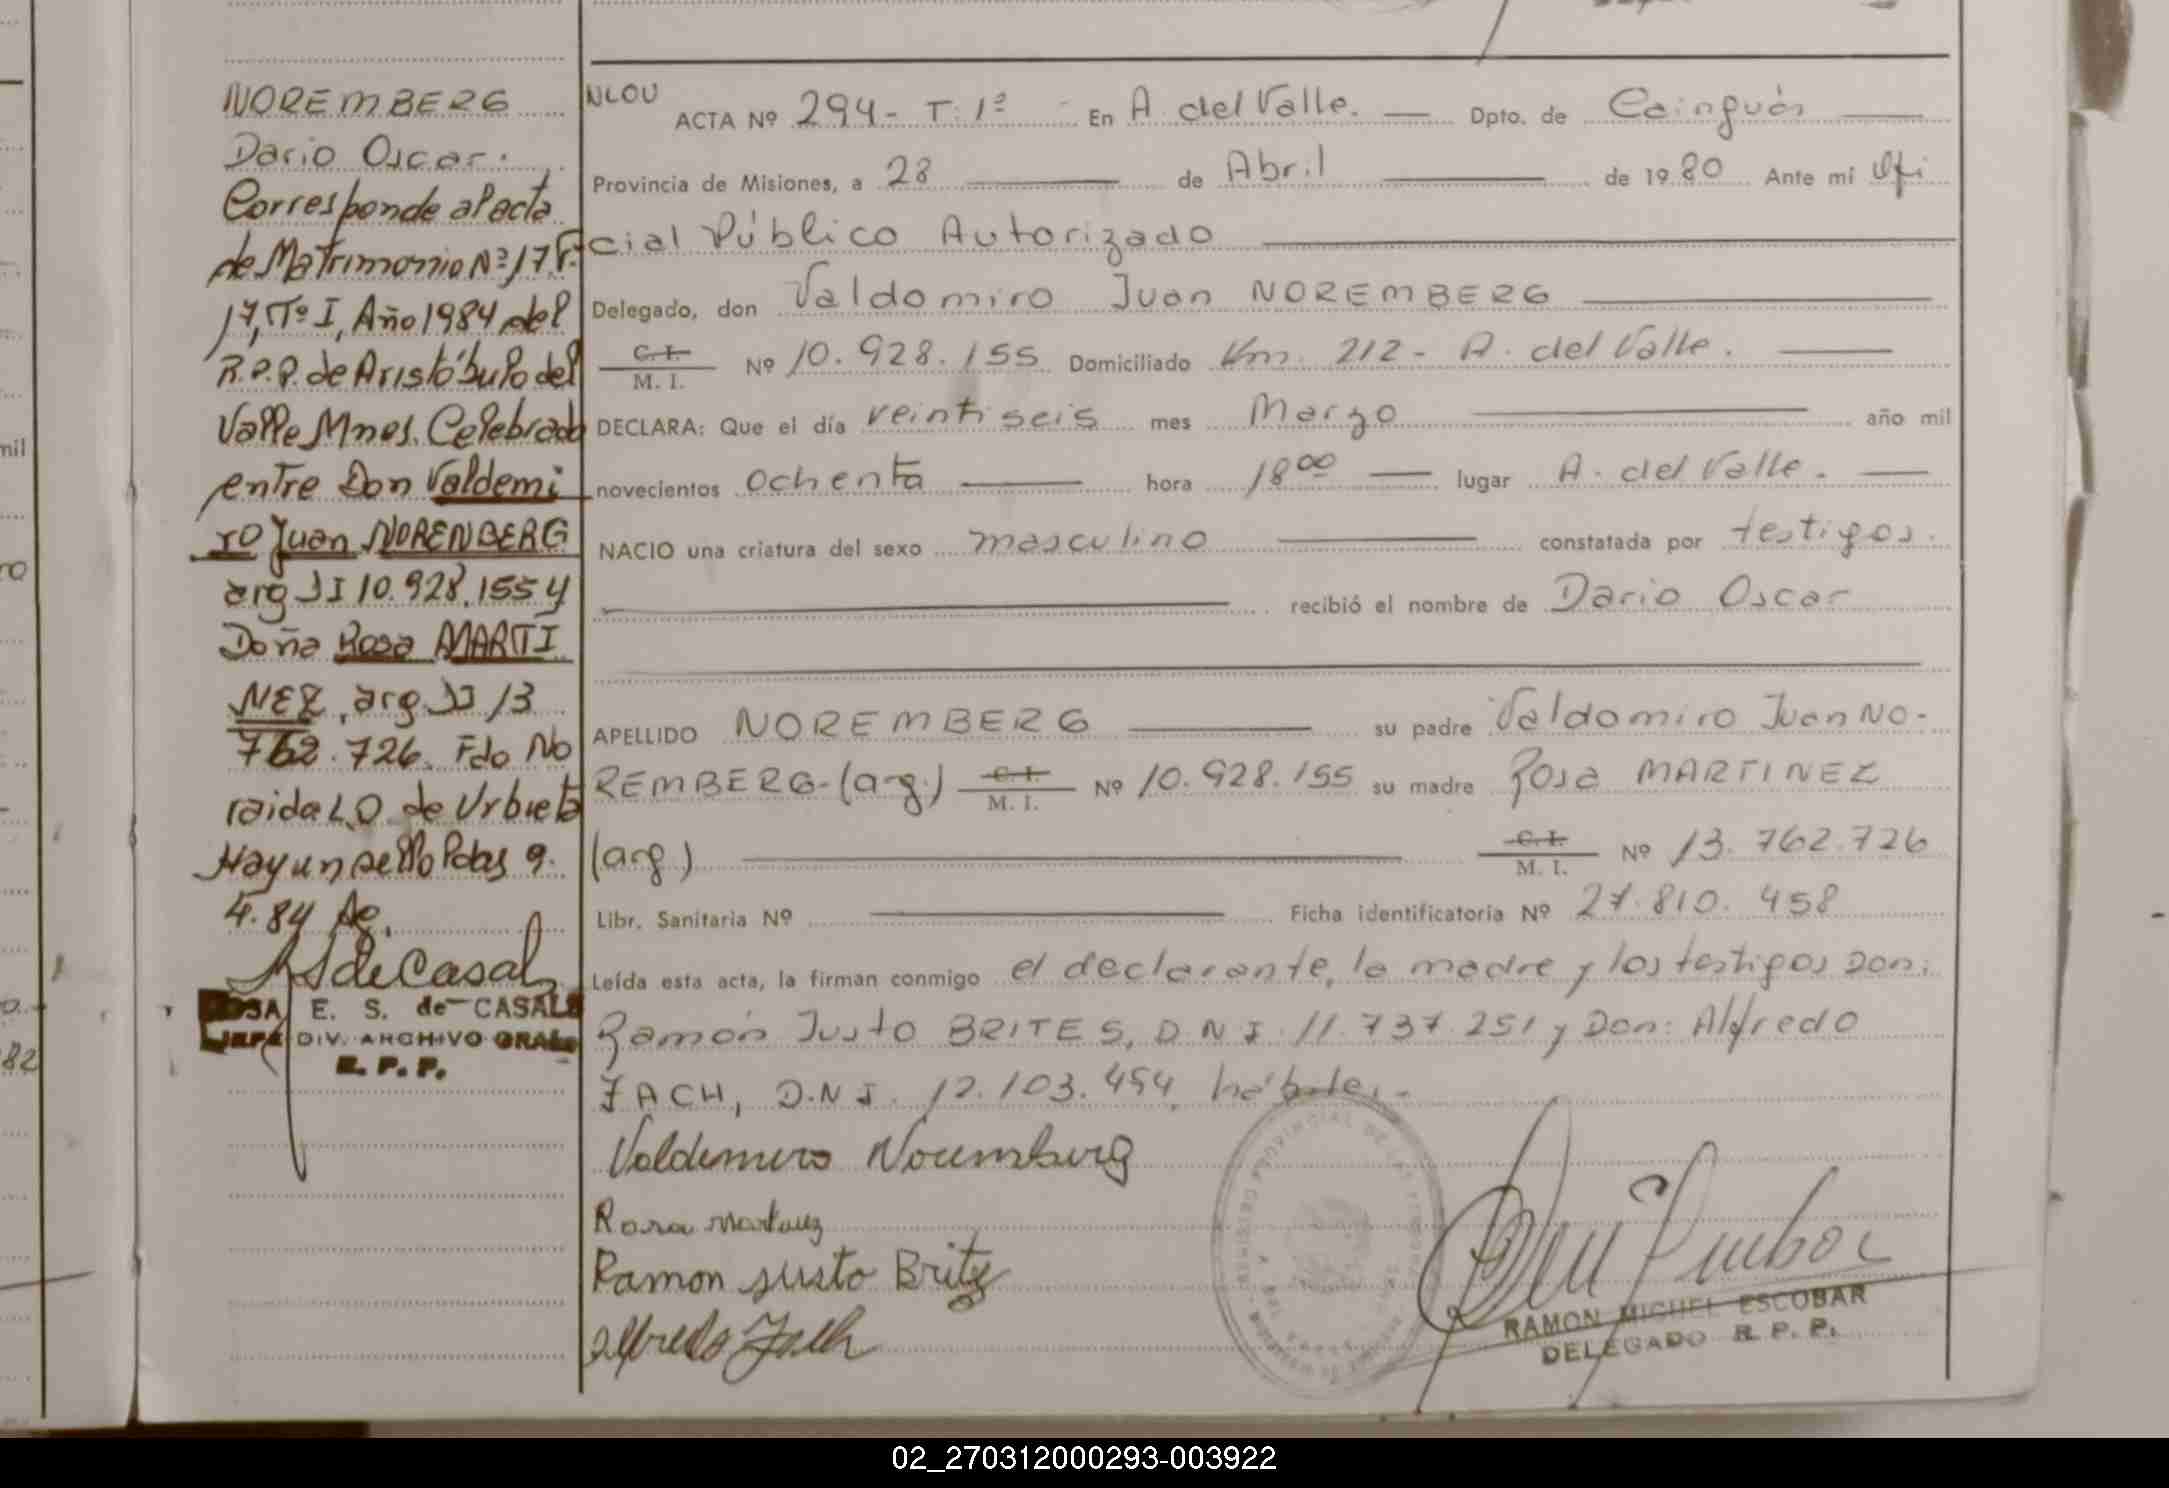 NOREMBERG
Dario Oscar.
Corresponde al acta
de Matrimonio Nº 17, F.
17, Tº I, Año 1984 del
R.P.P. de Aristóbulo del
Valle Mnes. Celebrado
entre Don Valdemi
ro Juan NORENBERG
arg DI 10.928.155 y
Doña Rosa MARTI
NEZ, arg. DI 13
762.726. Fdo No
raida L.O. de Urbieta
Hay un sello Pdas 9.
4.84
ROSA E. S. de CASALS
JEFE DIV. ARCHIVO GRAL.
R. P. P.
NLOU
ACTA Nº 294- T: 1º En A. del Valle. Dpto. de Cainguás
Provincia de Misiones, a 28 de Abril de 1980 Ante mi Ofi
cial Público Autorizado
Delegado, don Valdomiro Juan NOREMBERG
C. I.
M. I. Nº 10.928.155 Domiciliado Km. 212- A. del Valle.
DECLARA: Que el día veintiseis mes Marzo año mil
novecientos ochenta hora 18⁰⁰ lugar A. del Valle.
NACIO una criatura del sexo masculino constatada por testigos.
recibió el nombre de Dario Oscar
APELLIDO NOREMBERG su padre Valdomiro Juan NO-
REMBERG-(arg.) C. I. M. I. Nº 10.928.155 su madre Rosa MARTINEZ
(arg.) C. I. M. I. Nº 13.762.726
Libr. Sanitaria Nº Ficha identificatoria Nº 27.810.458
Leída esta acta, la firman conmigo el declarante, la madre y los testigos Don:
Ramón Justo BRITES, D.N.I. 11.737.251 y Don: Alfredo
FACH, D.N.I. 12.103.454, hábiles.-
Valdemiro Noremberg
Rosa Martinez
Ramon Justo Britez
Alfredo Fach
RAMON MICHEL ESCOBAR
DELEGADO R. P. P.
02_270312000293-003922